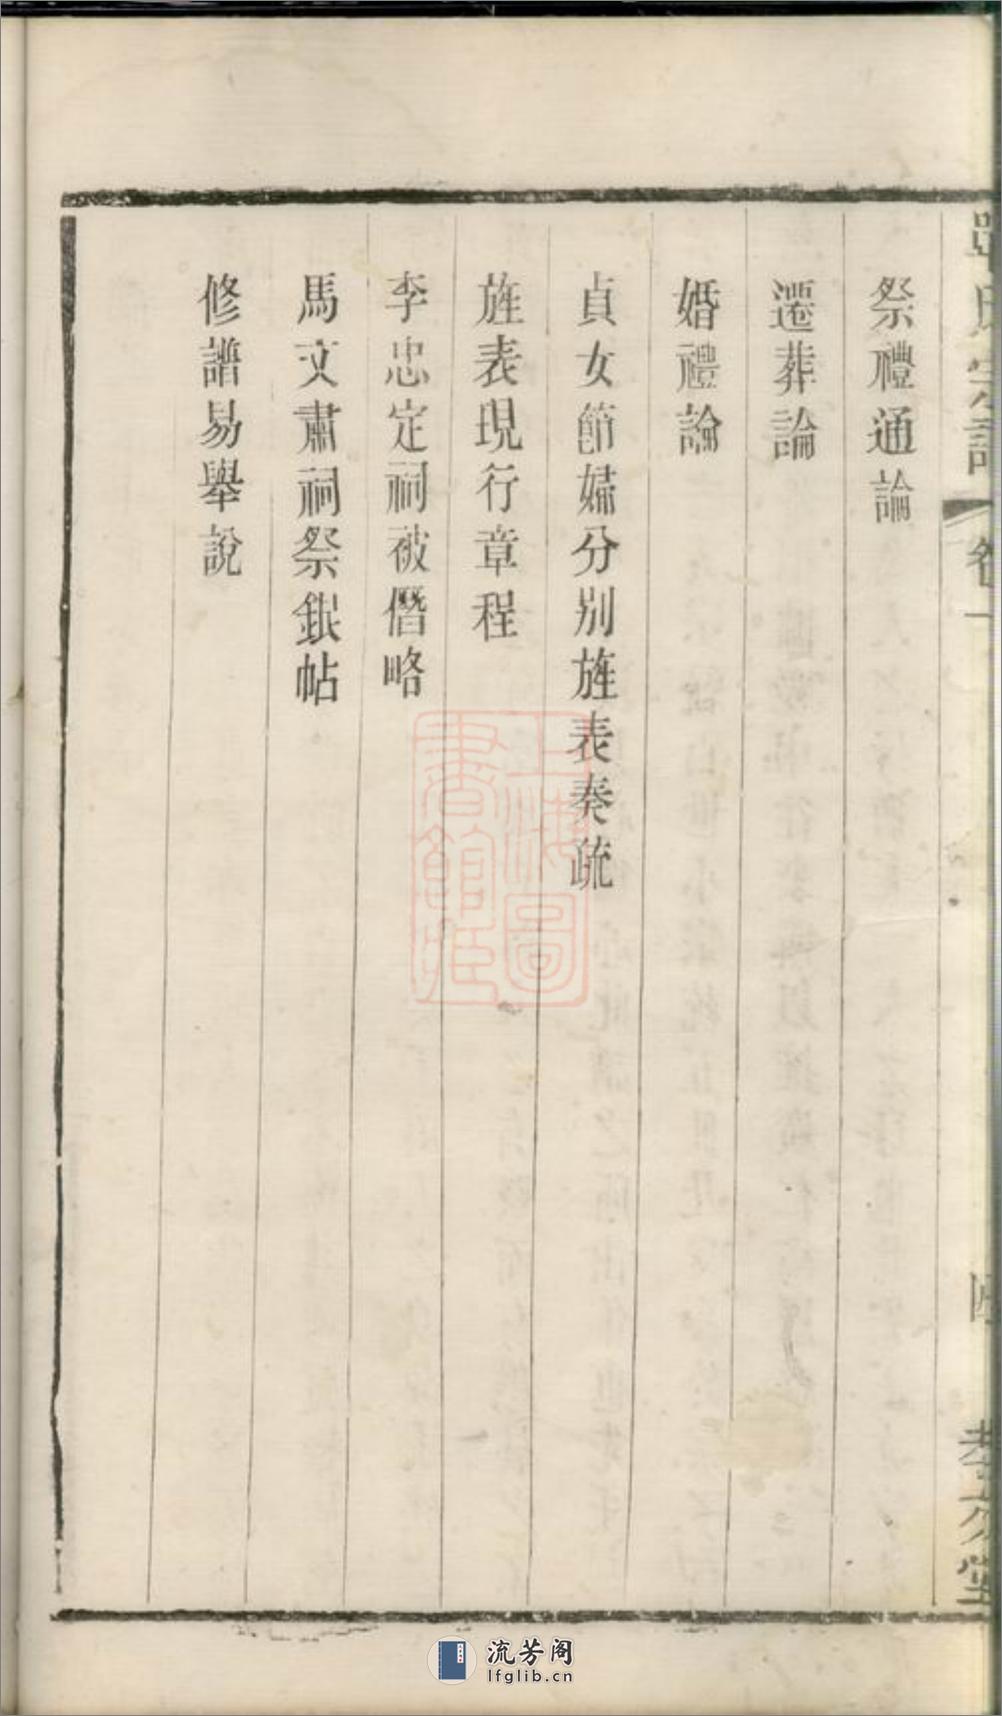 祭禮通論
遷葬論
婚禮論
貞女節孀分別旌表奏疏
旌表現行章程
李忠定祠被僭略
馬文肅祠祭銀帖
修譜易舉說
上海圖書館藏
流芳阁
lfglib.cn